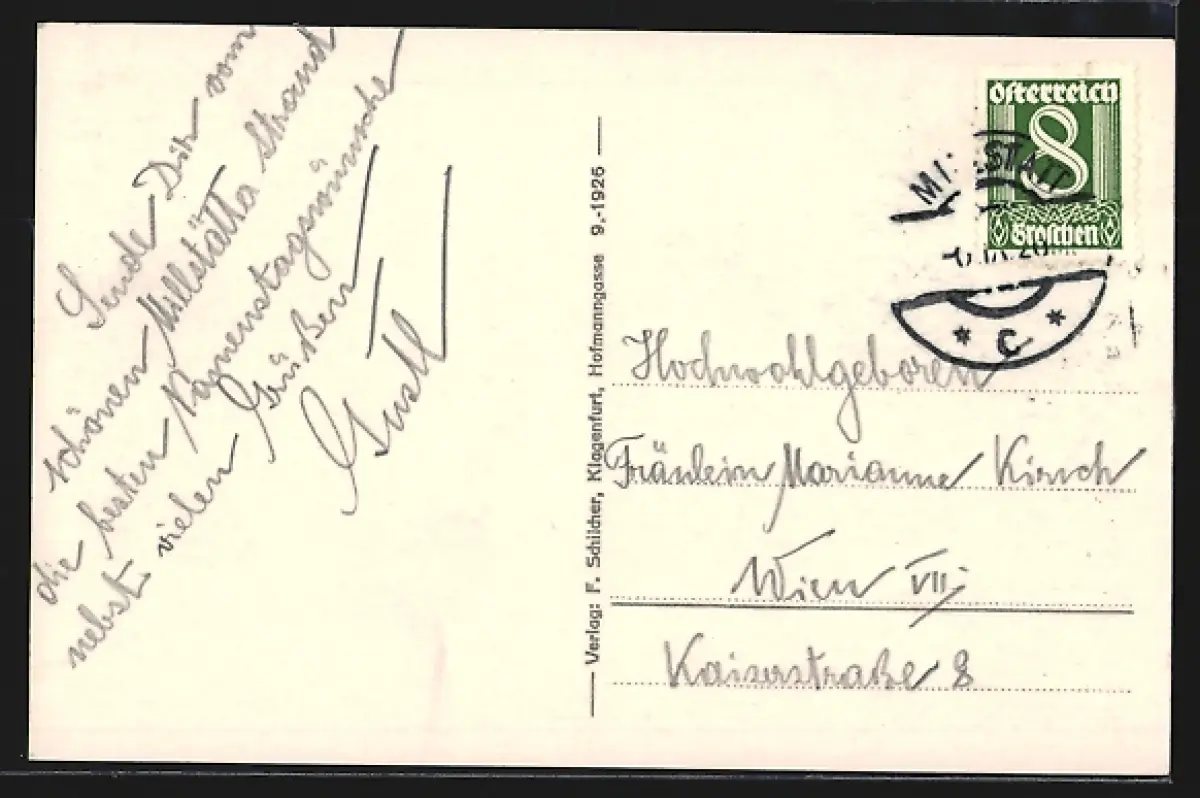 Sende Dir vom
schönen Millstätta Strand
die besten Namenstagswünsche
nebst vielen Grüßen
Gustl
Verlag: F. Schilcher, Klagenfurt, Hofmanngasse 9,-1926
österreich
8
Groschen
C
Hochwohlgeboren
Fräulein Marianne Kirsch
Wien VII
Kaiserstraße 8